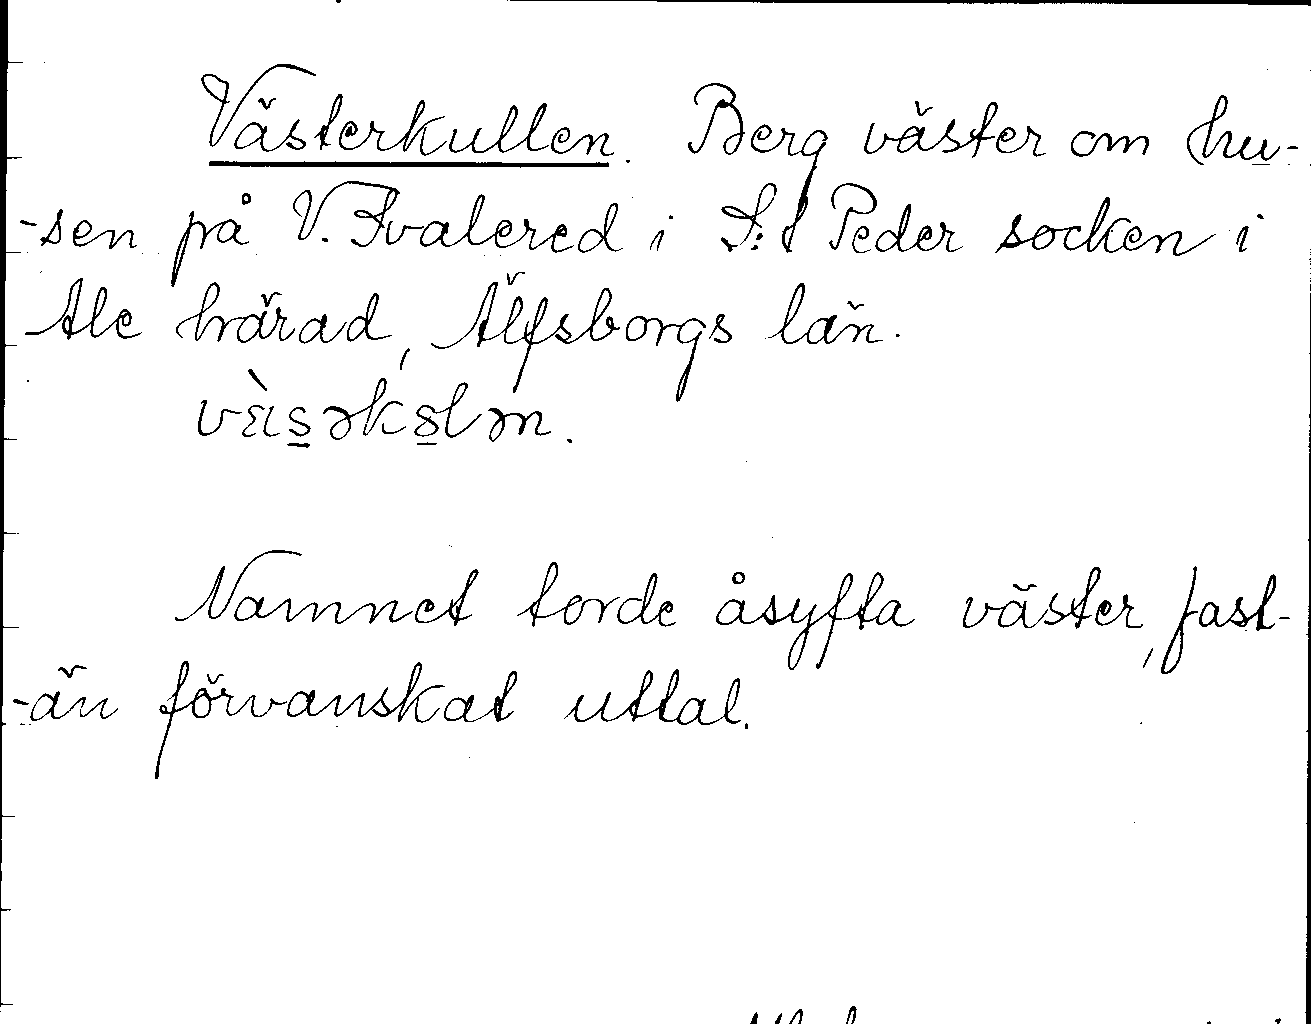 Västerkullen. Berg väster om hu-
-sen på V. Ivalered i S:t Peder socken i
Ale härad, Älfsborgs län.
Namnet torde åsyfta väster, fast-
-än förvanskat uttal.